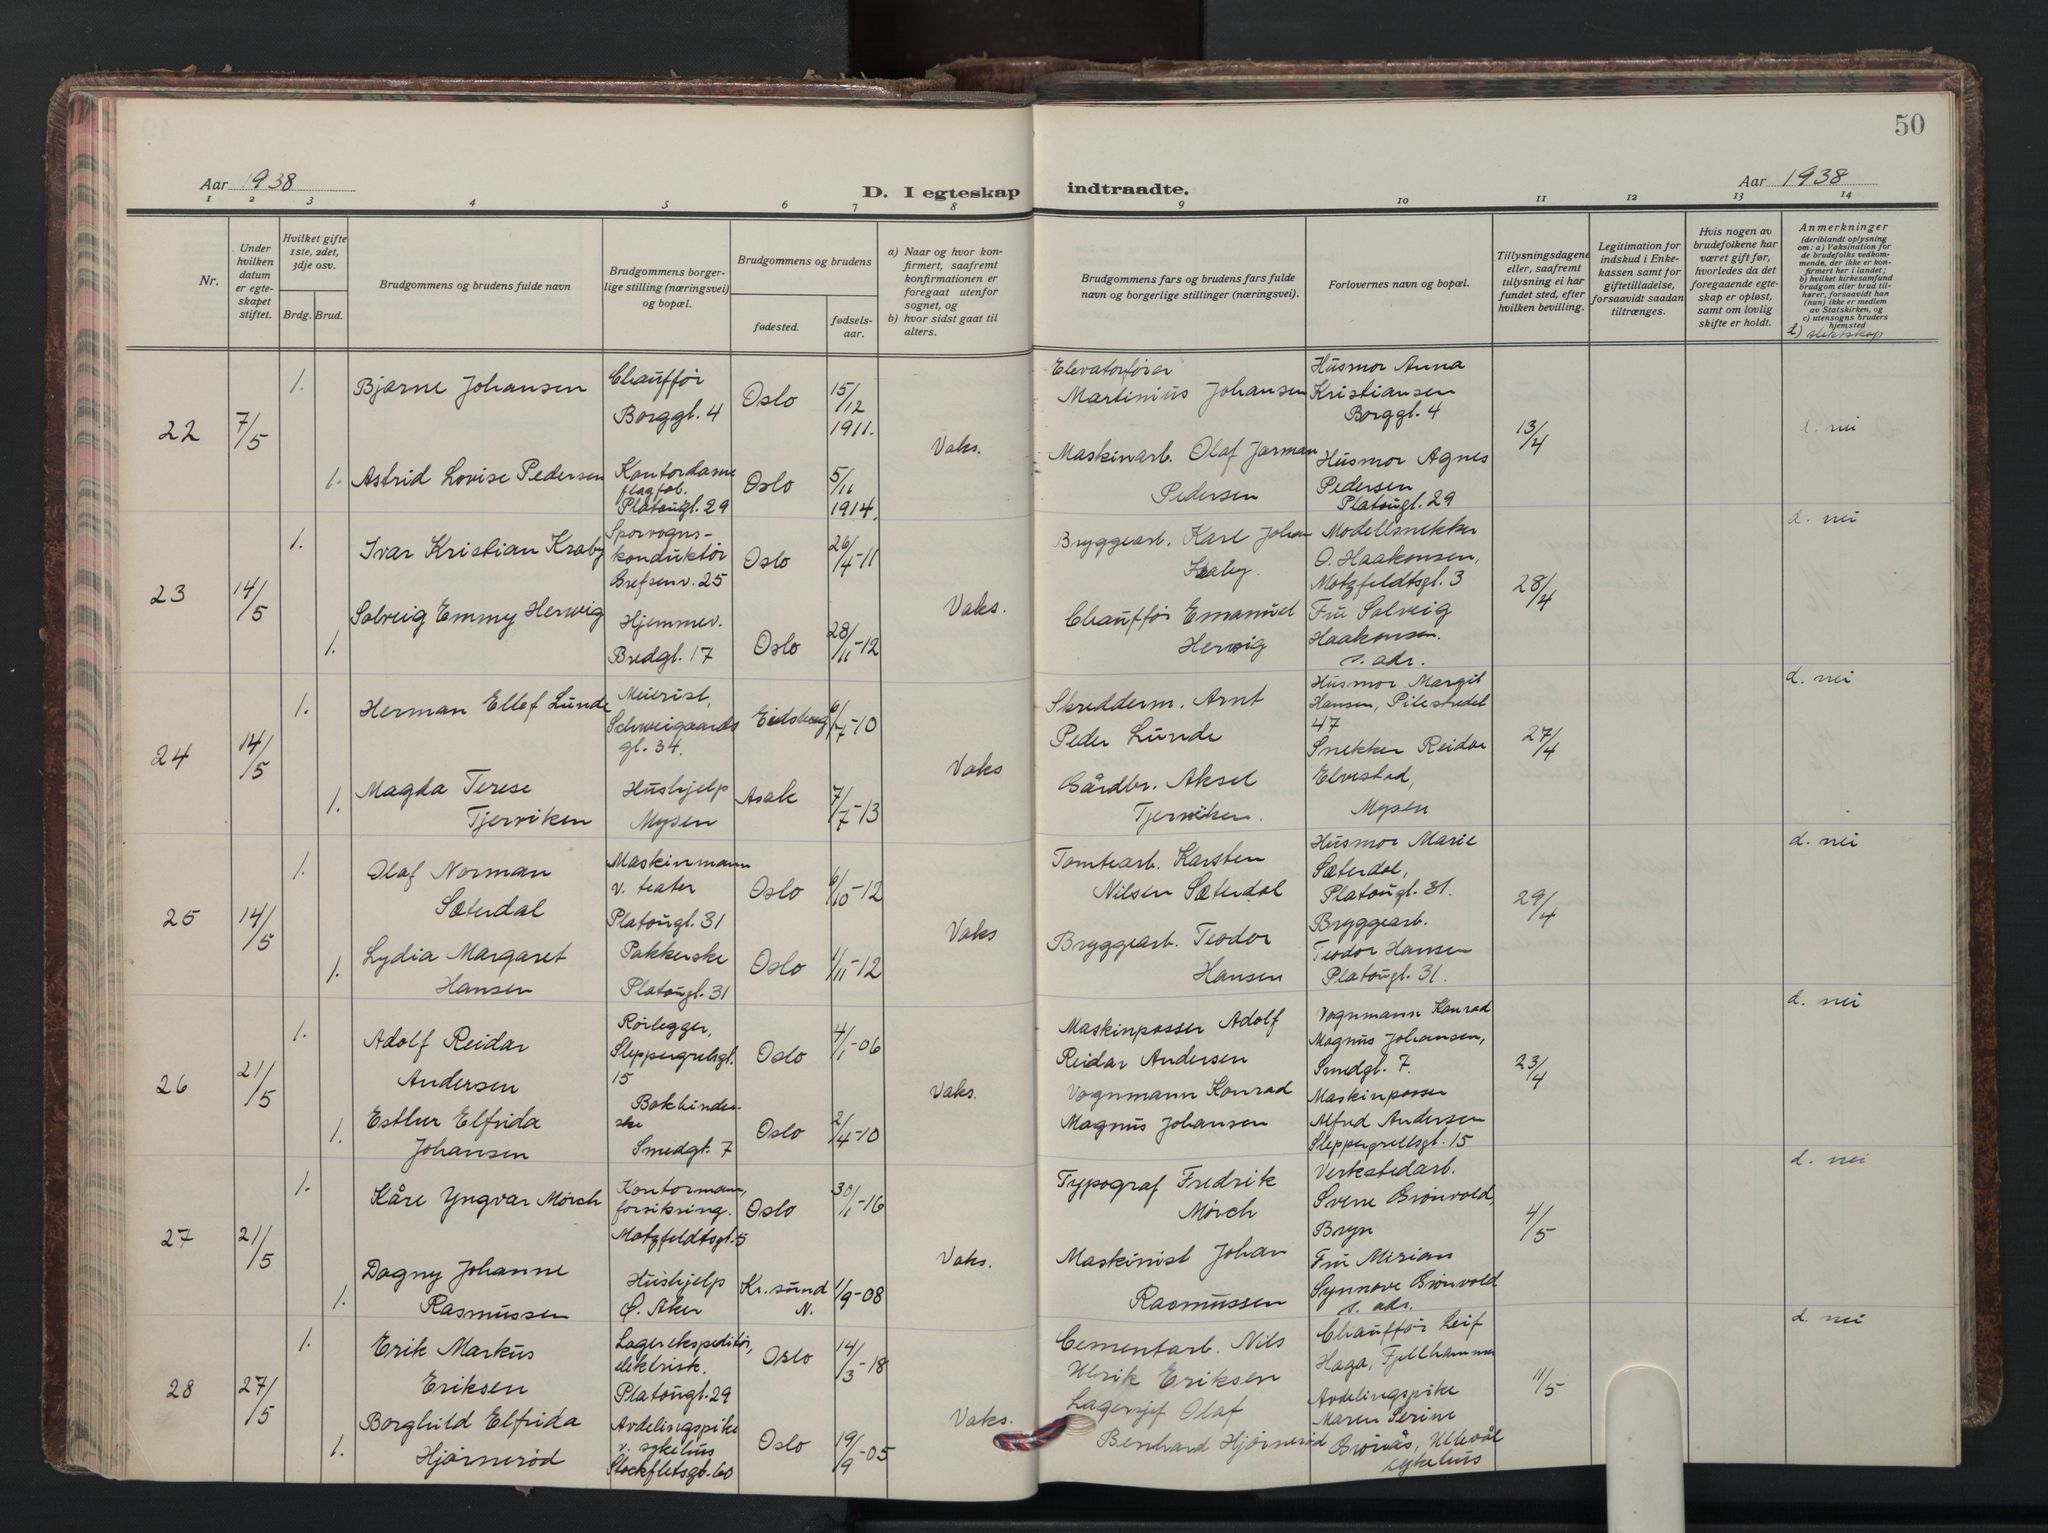 50
Aar 1938
D. I egteskap indtraadte.
Aar 1938
1 2 3 4 5 6 7 8 9 10 11 12 13 14
Nr.
Under hvilken datum er egte- skapet stiftet.
Hvilket gifte 1ste, 2det, 3dje osv.
Brdg. Brud.
Brudgommens og brudens fulde navn
Brudgommens borger- lige stilling (næringsvei) og bopæl.
Brudgommens og brudens
fødested.
fødsels- aar.
a) Naar og hvor kon- firmert, saafremt konfirmationen er foregaat utenfor sognet, og
b) hvor sidst gaat til alters.
Brudgommens fars og brudens fars fulde navn og borgerlige stillinger (næringsvei).
Forlovernes navn og bopæl.
Tillysningsdagene eller, saafremt tillysning ei har fundet sted, efter hvilken bevilling.
Legitimation for indskud i Enke- kassen samt for giftetilladelse, forsaavidt saadan tiltrænges.
Hvis nogen av brudefolkene har været gift før, hvorledes da det foregaaende egte- skap er opløst, samt om lovlig skifte er holdt.
Anmerkninger
(deriblandt oplysning om: a) Vaksination for de brudefolks vedkom- mende, der ikke er kon- firmert her i landet; b) hvilket kirkesamfund brudgom eller brud til- hører, forsaavidt han (hun) ikke er medlem av Statskirken, og c) utensogns bruders hjemsted
d) slektskap
22
7/5
1.
Bjarne Johansen
Chauffør
Borggt. 4
Oslo
15/12
1911.
Vaks.
Elevatorfører
Martinius Johansen
Husmor Anna
Kristiansen
Borggt. 4
13/4
d. nei
1.
Astrid Lovise Pedersen
Kontordame
Platougt. 29
Oslo
5/11
1914.
Maskinarb. Olaf Jarman
Pedersen
Husmor Agnes
Pedersen
Platougt. 29
23
14/5
1.
Ivar Kristian Kraby
Sporvogns-
konduktør
Grefsenv. 25
Oslo
26/4-11
Vaks.
Bryggearb. Karl Johan
Kraby.
Modellsnekker
O. Haakonsen,
Motzfeldtsgt. 3
28/4
d. nei
1.
Solveig Emmy Herwig
Hjemmev.
Bredgt. 17
Oslo
28/11-12
Chauffør Emanuel
Herwig
Fru Solveig
Haakonsen.
s. adr.
24
14/5
1.
Herman Ellef Lunde
Meierist,
Schweigaards
gt. 34.
Eidsberg
6/7-10
Vaks
Skredderm. Arnt
Peder Lunde
Husmor Margit
Hansen, Pilestredet
47
27/4
d. nei
1.
Magda Terese
Tjerviken
Hushjelp
Mysen
Asak
7/7-13
Gårdbr. Aksel
Tjerviken.
Snekker Reidar
Elvestad,
Mysen
25
14/5
1.
Olaf Norman
Sæterdal
Maskinmann
v. teater
Platougt. 31
Oslo
6/10-12
Vaks
Tomtearb. Karsten
Nilsen Sæterdal
Husmor Marie
Sæterdal,
Platougt. 31.
29/4
d. nei
1.
Lydia Margaret
Hansen
Pakkerske
Platougt. 31
Oslo
1/11-12
Bryggearb. Teodor
Hansen
Bryggearb.
Teodor Hansen
Platougt. 31.
26
21/5
1.
Adolf Reidar
Andersen
Rørlegger,
Sleppegrellsgt.
15
Oslo
4/1-06
Vaks.
Maskinpasser Adolf
Reidar Andersen
Vognmann Konrad
Magnus Johansen,
Smedgt. 7.
23/4
d. nei
1.
Esther Elfrida
Johansen
Bokbinder-
ske
Smedgt. 7
Oslo
2/4-10
Vognmann Konrad
Magnus Johansen
Maskinpasser
Alfred Andersen
Sleppegrellsgt. 15
27
21/5
1.
Kåre Yngvar Mörch
Kontormann,
forsikring.
Motzfeldtsgt. 5
Oslo
30/1-16
Vaks.
Typograf Fredrik
Mörch
Verkstedarb.
Svene Grönvold,
Bryn
4/5
d. nei
1.
Dagny Johanne
Rasmussen
Hushjelp
Ø. Aker
Kr.sund
N.
1/9-08
Maskinist Johan
Rasmussen
Fru Mirian
Synnøve Grönvold
s. adr.
28
27/5
1.
Erik Markus
Eriksen
Lagerekspeditør,
elektrisk.
Platougt. 29
Oslo
14/3-18
Vaks.
Cementarb. Nils
Ulrik Eriksen
Chauffør Leif
Haga, Fjellhammer
11/5
d. nei
1.
Borghild Elfrida
Hjørnerød
Avdelingspike
v. sykehus
Stockfletsgt. 60
Oslo
19/9-05
Lagersjef Olaf
Bernhard Hjørnerød
Avdelingspike
Maren Serine
Brønås, Ullevål
sykehus